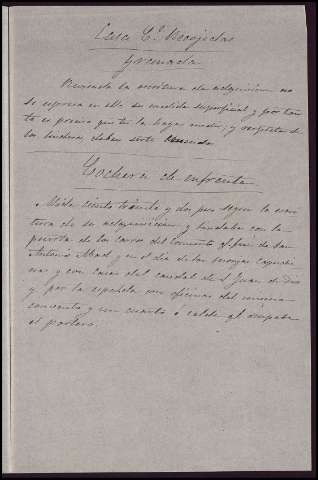 Casa C.ª Recojidas
Granada
Revisada la escritura de adquisicion no
se espresa en ella su medida superficial y por tan
to es preciso que la haga medir, y respecto de
los linderos deben serlo
Cochera de enfrente
Mide ciento treinta y dos pies segun la escri
tura de su adquisicion y lindaba con la
puerta de los carros del convento q.e fué de San
Antonio Abad y en el dia de las monjas capuchi
nas y con casas del caudal de S. Juan de Dios
y por la espalda con oficinas del mismo
convento y un cuarto ó
el portero.